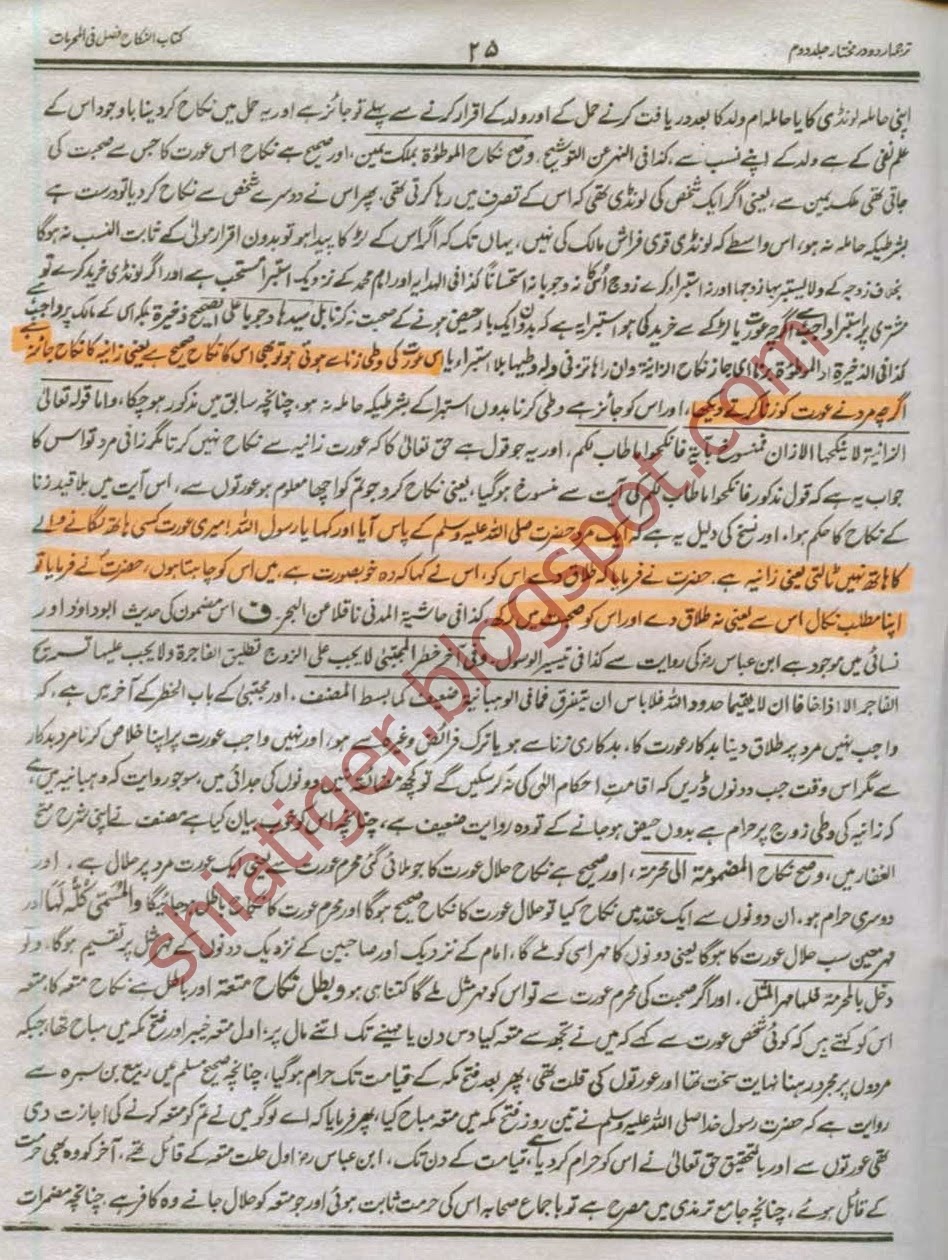 ترجمہ اردو در مختار جلد دوم
۲۵
کتاب النکاح فصل فی المحرمات
اپنی حاملہ لونڈی کا یا حاملہ ام ولد کا بعد دریافت کرنے حمل کے اور ولد کے اقرار کرنے سے پہلے تو جائز ہے اور یہ حمل میں نکاح کر دینا باوجود اس کے
علم نفی کے ہے ولد کے اپنے نسب سے، کذا فی النہر عن التوشیح۔ وصح نکاح الموطوٴۃ بملک یمین، اور صحیح ہے نکاح اس عورت کا جس سے صحبت کی
جاتی تھی ملک یمین سے، یعنی اگر ایک شخص کی لونڈی تھی کہ اس کے تصرف میں رہا کرتی تھی۔ پھر اس نے دوسرے شخص سے نکاح کر دیا تو درست ہے
بشرطیکہ حاملہ نہ ہو، اس واسطے کہ لونڈی قوی فراش مالک کی نہیں، یہاں تک کہ اگر اس کے لڑکا پیدا ہو تو بدون اقرار مولیٰ کے ثابت النسب نہ ہوگا
بخلاف زوجیہ کے ولا یستبرٴیہا زوجہا اور نہ استبراء کرے زوج اس کا نہ وجوباً نہ استحساناً کذا فی الہدایہ اور امام محمد کے نزدیک استبراء مستحب ہے اور اگر لونڈی خرید کرے تو
مشتری پر استبراء واجب ہے اگرچہ عورت یا لڑکے سے خرید کی ہو استبراء یہ ہے کہ بدون ایک بار حیض ہونے کے صحبت نہ کرنا بل سیدہا وجوباً علی الصحیح ذخیرۃ بلکہ اس کے مالک پر واجب ہے
کذا فی الذخیرۃ او الموطوٴۃ بزنا ای جاز نکاح الزانیۃ وان راٰہا تزنی ولہ وطیہا بلا استبراء یا اس عورت کی وطی زنا سے ہوئی ہو تو بھی اس کا نکاح صحیح ہے یعنی زانیہ کا نکاح جائز ہے
اگرچہ مرد نے عورت کو زنا کرتے دیکھا، اور اس کو جائز ہے وطی کرنا بدون استبراء کے بشرطیکہ حاملہ نہ ہو، چنانچہ سابق میں مذکور ہو چکا، واما قولہ تعالیٰ
الزانیۃ لا ینکحہا الا زان فمنسوخ بآیۃ فانکحوا ما طاب لکم، اور یہ جو قول ہے حق تعالیٰ کا کہ عورت زانیہ سے نکاح نہیں کرتا مگر زانی مرد تو اس کا
جواب یہ ہے کہ قول مذکور فانکحوا ما طاب لکم کی آیت سے منسوخ ہو گیا، یعنی نکاح کرو جو تم کو اچھا معلوم ہو عورتوں سے، اس آیت میں بلا قید زنا
کے نکاح کا حکم ہوا، اور نسخ کی دلیل یہ ہے کہ ایک مرد حضرت صلی اللہ علیہ وسلم کے پاس آیا اور کہا یا رسول اللہ! میری عورت کسی ہاتھ لگانے والے
کا ہاتھ نہیں ٹالتی یعنی زانیہ ہے، حضرت نے فرمایا کہ طلاق دے اس کو، اس نے کہا کہ وہ خوبصورت ہے، میں اس کو چاہتا ہوں، حضرت نے فرمایا تو
اپنا مطلب نکال اس سے یعنی نہ طلاق دے اور اس کو صحبت میں رکھ کذا فی حاشیۃ المدنی ناقلا عن البحر۔ ف اس مضمون کی حدیث ابو داوٴد اور
نسائی میں موجود ہے ابن عباس رض کی روایت سے کذا فی تیسیر الوصول۔ وفی آخر حظر المجتبیٰ لا یجب علی الزوج تطلیق الفاجرۃ ولا یجب علیہا تسریح
الفاجر الا اذا خافا ان لا یقیما حدود اللہ فلا باس ان یتفرقا فما فی الوہبانیۃ ضعیف کما بسط المصنف، اور مجتبیٰ کے باب الحظر کے آخر میں ہے، کہ
واجب نہیں مرد پر طلاق دینا بدکار عورت کا، بدکاری زنا سے ہو یا ترک فرائض وغیرہ سے ہو، اور نہیں واجب عورت پر اپنا خلاص کرنا مرد بدکار
سے مگر اس وقت جب دونوں ڈریں کہ اقامت احکام الٰہی کی نہ کر سکیں گے تو کچھ مضائقہ نہیں دونوں کی جدائی میں، سو جو روایت کہ وہبانیہ میں ہے
کہ زانیہ کی وطی زوج پر حرام ہے بدون حیض ہو جانے کے تو وہ روایت ضعیف ہے، چنانچہ اس کو خوب بیان کیا ہے مصنف نے اپنی شرح منح
الغفار میں، وصح نکاح المضمومۃ الی محرمۃ، اور صحیح ہے نکاح حلال عورت کا جو ملائی گئی محرم عورت سے یعنی ایک عورت مرد پر حلال ہے، اور
دوسری حرام ہو، ان دونوں سے ایک عقد میں نکاح کیا تو حلال عورت کا نکاح صحیح ہوگا اور محرم عورت کا نکاح باطل ہو جائیگا والمسمّٰی کلہ لہا اور
مہر معین سب حلال عورت کا ہوگا یعنی دونوں کا مہر اسی کو ملے گا، امام کے نزدیک اور صاحبین کے نزدیک دونوں کے مہر مثل پر تقسیم ہوگا، ولو
دخل بالمحرمۃ فلہا مہر المثل، اور اگر صحبت کی محرم عورت سے تو اس کو مہر مثل ملے گا کتنا ہی ہو وبطل نکاح متعۃ اور باطل ہے نکاح متعہ کا، متعہ
اس کو کہتے ہیں کہ کوئی شخص عورت سے کہے کہ میں نے تجھ سے متعہ کیا دس دن یا مہینے تک اتنے مال پر، اول متعہ خیبر اور فتح مکہ میں مباح تھا، جبکہ
مردوں پر مجرد رہنا نہایت سخت تھا اور عورتوں کی قلت تھی، پھر بعد فتح مکہ کے قیامت تک حرام ہو گیا، چنانچہ صحیح مسلم میں ربیع بن سبرہ سے
روایت ہے کہ حضرت رسول خدا صلی اللہ علیہ وسلم نے تین روز فتح مکہ میں متعہ مباح کیا، پھر فرمایا کہ اے لوگو میں نے تم کو متعہ کرنے کی اجازت دی
تھی عورتوں سے اور بالتحقیق حق تعالیٰ نے اس کو حرام کر دیا ہے، قیامت کے دن تک، ابن عباس رض اول حلت متعہ کے قائل تھے، آخر کو وہ بھی حرمت
کے قائل ہوئے، چنانچہ جامع ترمذی میں مصرح ہے تو باجماع صحابہ اس کی حرمت ثابت ہوئی اور جو متعہ کو حلال جانے وہ کافر ہے چنانچہ مضمرات
shiatiger.blogspot.com